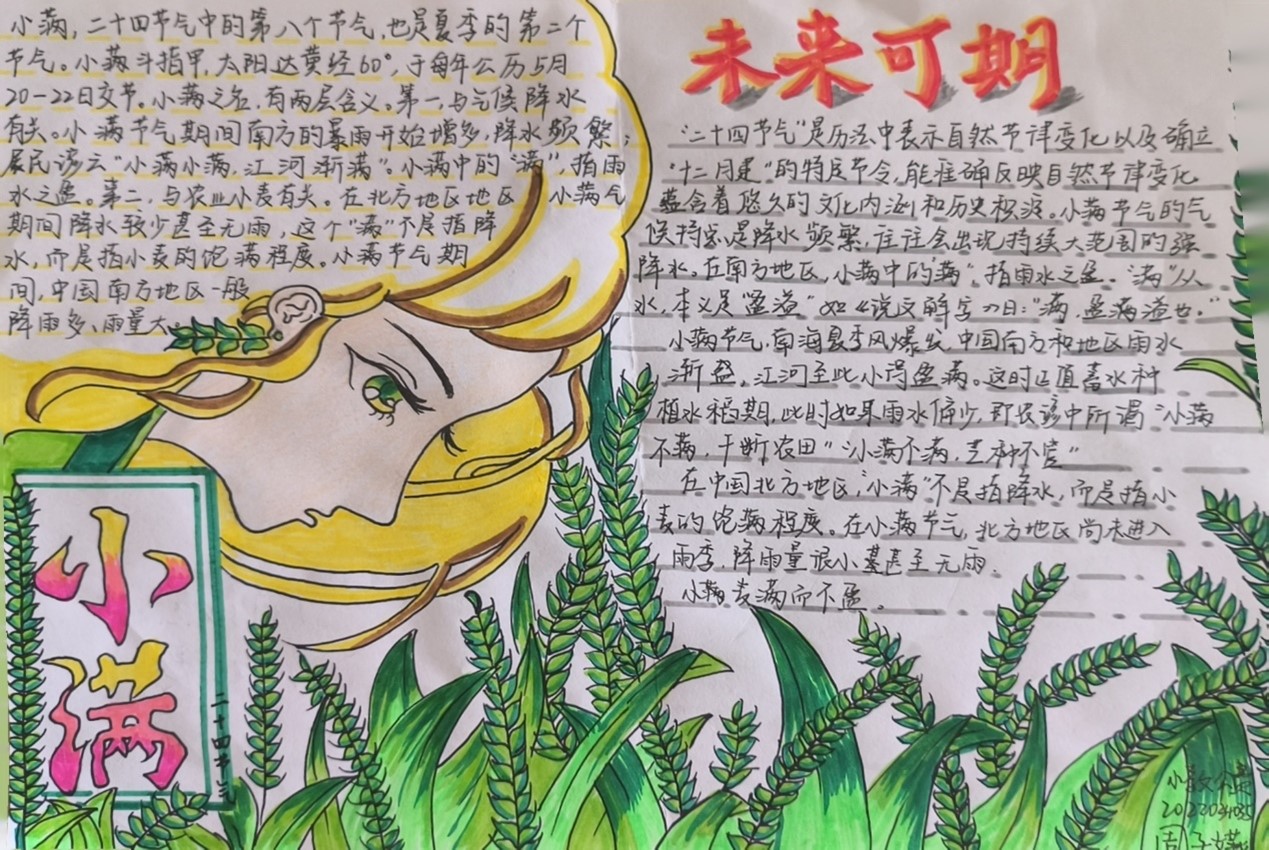 小满，二十四节气中的第八个节气，也是夏季的第二个
节气。小满斗指甲，太阳达黄经60°，于每年公历5月
20-22日交节。小满之名，有两层含义。第一，与气候降水
有关。小满节气期间南方的暴雨开始增多，降水频繁；
民谚云“小满小满，江河渐满”。小满中的“满”，指雨
水之盈。第二，与农业小麦有关。在北方地区地区 小满气
期间降水较少甚至无雨，这个“满”不是指降
水，而是指小麦的饱满程度。小满节气期
间，中国南方地区一般
降雨多、雨量大。
小满
二十四节气
未来可期
“二十四节气”是历法中表示自然节律变化以及确立
“十二月建”的特定节令，能准确反映自然节律变化
蕴含着悠久的文化内涵和历史积淀。小满节气的气
候特点是降水频繁，往往会出现持续大范围的强
降水。在南方地区，小满中的“满”，指雨水之盈。“满”从
水，本义是“盈溢”如《说文解字》曰：“满，盈满溢也。”
小满节气，南海夏季风爆发，中国南方和地区雨水
渐盈，江河至此小得盈满。这时正值蓄水种
植水稻期，此时如果雨水偏少，即农谚中所谓“小满
不满，干断农田”“小满不满，芒种不管”
在中国北方地区，“小满”不是指降水，而是指小
麦的饱满程度。在小满节气，北方地区尚未进入
雨季，降雨量很小甚至无雨。
小满麦满而不盈。